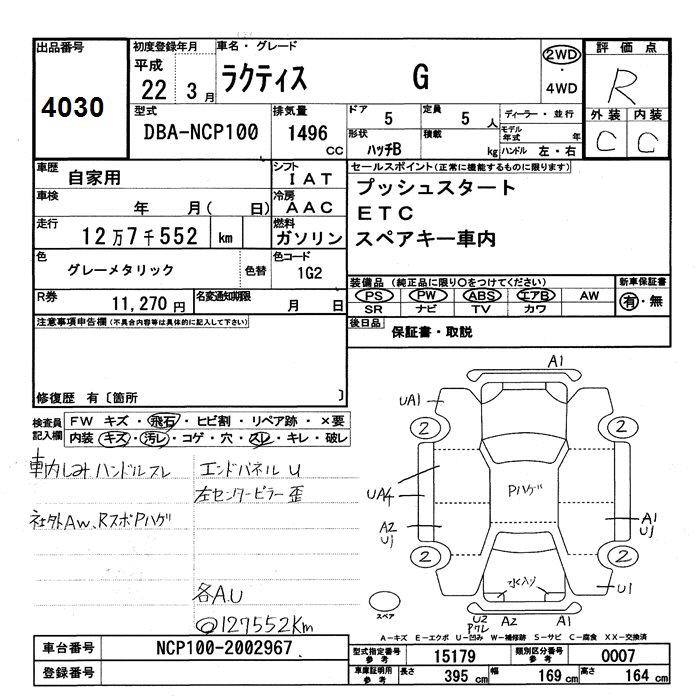 出品番号
4030
初度登録年月
平成
22 3 月
車名・グレード
ラクティス G
2WD
・
4WD
評価点
R
外装 内装
C C
型式
DBA-NCP100
排気量
1496
CC
ドア
5
定員
5 人
形状
ハッチB
積載
kg
ディーラー・並行
モデル年式 年
ハンドル 左・右
車歴
自家用
シフト
IAT
車検
年 月( 日)
冷房
AAC
走行
12万7千552 km
燃料
ガソリン
色
グレーメタリック
色替
色コード
1G2
R券
11,270 円
名変通知期限
月 日
セールスポイント(正常に機能するものに限ります)
プッシュスタート
ETC
スペアキー車内
装備品(純正品に限り○をつけてください)
PS PW ABS エアB AW
SR ナビ TV カワ
新車保証書
有・無
後日品
保証書・取説
注意事項申告欄(不具合内容等は具体的に記入して下さい)
修復歴 有〔箇所 〕
検査員
記入欄
FW キズ・飛石・ヒビ割・リペア跡・×要
内装 キズ・汚レ・コゲ・穴・スレ・キレ・破レ
ハンドルスレ
エンドパネルU
左センターピラー歪
社外AW、RスポPハゲ
各A.U
◎127552Km
A1
UA1
2
2
UA4
Pハゲ
A2
U1
A1
U1
2
2
水入り
U1
スペア
U2
A2
A1
A-キズ E-エクボ U-凹み W-補修跡 S-サビ C-腐食 XX-交換済
車台番号
NCP100-2002967
登録番号
型式指定番号
参考
15179
類別区分番号
参考
0007
車庫証明用
参考
長さ
395 cm
幅
169 cm
高さ
164 cm